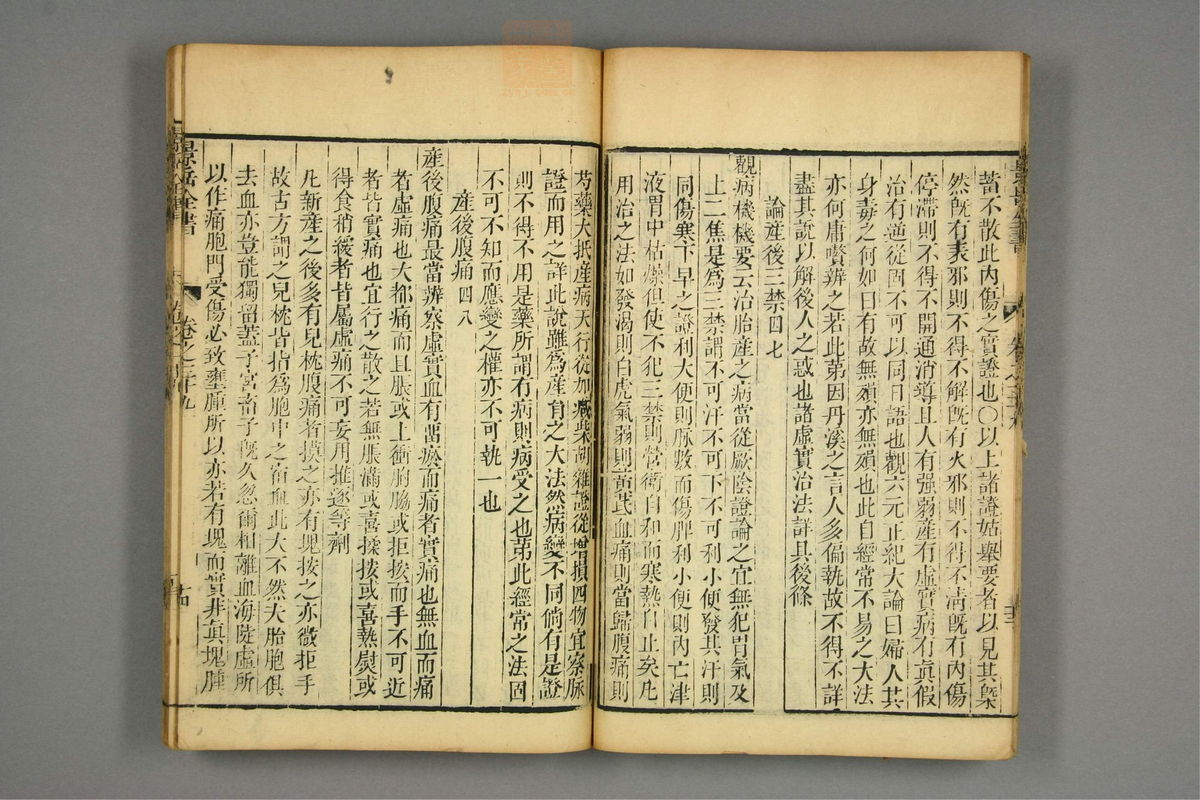 蓄不散此內傷之實證也○以上諸證姑舉要者以見其槩
然既有表邪則不得不解既有火邪則不得不清既有內傷
停滯則不得不開通消導且人有强弱產有虛實病有眞假
治有逆從固不可以同日語也觀六元正紀大論曰婦人其
身毒之何如曰有故無殞亦無殞也此自經常不易之大法
亦何庸贅辨之若此第因丹溪之言人多偏執故不得不詳
盡其說以解後人之惑也諸虛實治法詳具後條
論產後三禁四七
觀病機機要云治胎產之病當從厥陰證論之宜無犯胃氣及
上二焦是爲三禁謂不可汗不可下不可利小便發其汗則
同傷寒下早之證利大便則脉數而傷脾利小便則內亡津
液胃中枯燥但使不犯三禁則營衛自和而寒熱自止矣凡
用治之法如發渴則白虎氣弱則黃芪血痛則當歸腹痛則
芍藥大抵產病天行從加減柴胡雜證從增損四物宜察脉
證而用之詳此說雖爲產育之大法然病變不同倘有是證
則不得不用是藥所謂有病則病受之也第此經常之法固
不可不知而應變之權亦不可執一也
產後腹痛四八
產後腹痛最當辨察虛實血有留瘀而痛者實痛也無血而痛
者虛痛也大都痛而且脹或上衝胸脇或拒按而手不可近
者皆實痛也宜行之散之若無脹滿或喜揉按或喜熱熨或
得食稍緩者皆屬虛痛不可妄用推逐等劑
凡新產之後多有兒枕腹痛者摸之亦有塊按之亦微拒手
故古方謂之兒枕皆指爲胞中之宿血此大不然夫胎胞俱
去血亦豈能獨留蓋子宮蓄子既久忽爾相離血海陡虛所
以作痛胞門受傷必致壅腫所以亦若有塊而實非眞塊腫
景岳全書
卷之三十九